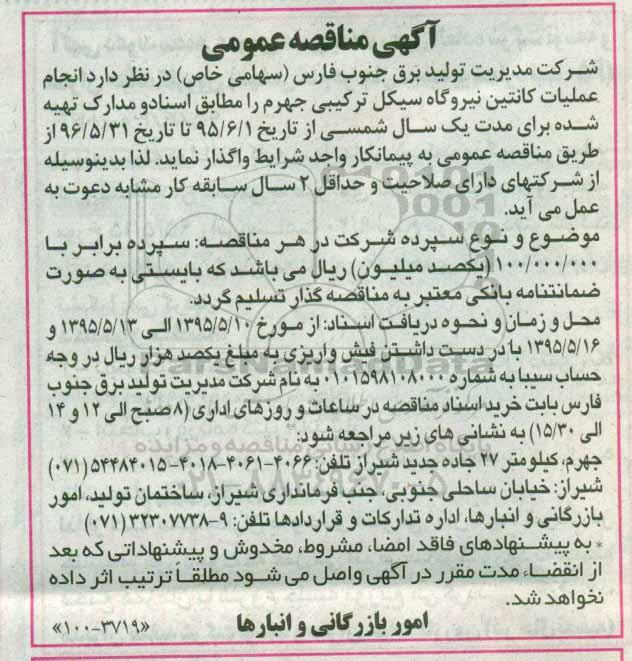 آگهی مناقصه عمومی
شرکت مدیریت تولید برق جنوب فارس (سهامی خاص) در نظر دارد انجام
عملیات کانتین نیروگاه سیکل ترکیبی جهرم را مطابق اسنادو مدارک تهیه
شده برای مدت یک سال شمسی از تاریخ ۹۵/۶/۱ تا تاریخ ۹۶/۵/۳۱ از
طریق مناقصه عمومی به پیمانکار واجد شرایط واگذار نماید. لذا بدینوسیله
از شرکتهای دارای صلاحیت و حداقل ۲ سال سابقه کار مشابه دعوت به
عمل می آید.
موضوع و نوع سپرده شرکت در هر مناقصه: سپرده برابر با
۱۰۰/۰۰۰/۰۰۰ (یکصد میلیون) ریال می باشد که بایستی به صورت
ضمانتنامه بانکی معتبر به مناقصه گذار تسلیم گردد.
محل و زمان و نحوه دریافت اسناد: از مورخ ۱۳۹۵/۵/۱۰ الی ۱۳۹۵/۵/۱۳ و
۱۳۹۵/۵/۱۶ با در دست داشتن فیش واریزی به مبلغ یکصد هزار ریال در وجه
حساب سیبا به شماره ۰۱۰۱۵۹۸۱۰۸۰۰۰ به نام شرکت مدیریت تولید برق جنوب
فارس بابت خرید اسناد مناقصه در ساعات و روزهای اداری (۸ صبح الی ۱۲ و ۱۴
الی ۱۵/۳۰) به نشانی های زیر مراجعه شود:
جهرم، کیلومتر ۲۷ جاده جدید شیراز تلفن: ۴۰۶۶-۴۰۶۱-۴۰۱۸-۵۴۴۸۴۰۱۵ (۰۷۱)
شیراز: خیابان ساحلی جنوبی، جنب فرمانداری شیراز، ساختمان تولید، امور
بازرگانی و انبارها، اداره تدارکات و قراردادها تلفن: ۹-۳۲۳۰۷۷۳۸ (۰۷۱)
* به پیشنهادهای فاقد امضا، مشروط، مخدوش و پیشنهاداتی که بعد
از انقضاء مدت مقرر در آگهی واصل می شود مطلقاً ترتیب اثر داده
نخواهد شد.
امور بازرگانی و انبارها
«۱۰۰-۳۷۱۹»
ParsNamadData
پایگاه اطلاع رسانی مناقصه و مزایده